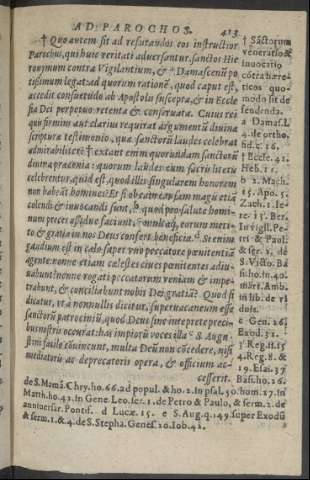 AD PAROCHOS. 423
† Quo autem sit ad refutandos eos instructior
Parochus, qui huic veritati adversantur, sanctos Hie
ronymum contra Vigilantium, & Damascenū po
tissimum legat: ad quorum rationē, quod caput est,
accedit consuetudo ab Apostolis suscepta, & in Eccle
sia Dei perpetuo retenta & conservata. Cuius rei
quis firmius aut clarius requirat argumentū divinæ
scripturæ testimonio, quæ sanctorū laudes celebrat
admirabiliter? ‡ extant enim quorundam sanctorū
divina præconia: quorum laudes cum sacris literis
celebrentur, quid est, quod illis singularem honorem
non habeāt homines? Et si ob eam etiam magis etiā
colendi, & invocandi sunt, b quod pro salute homi-
num preces assidue faciunt, multaq́; eorum meri-
to & gratia in nos Deus confert beneficia. Si enim
gaudium est in cælo super uno peccatore pœnitentiā
agente: nonne etiam cælestes cives pœnitentes adiu-
vabunt? nonne rogati peccatorum veniam & impe-
trabunt, & conciliabunt nobis Dei gratiā? Quod si
dicatur, ut a nonnullis dicitur, supervacaneum esse
sanctorū patrociniū, quod Deus sine interprete preci-
bus nostris occurrat: has impiorū voces illa S. Augu-
stini facile cōvincunt, multa Deū non cōcedere, nisi
mediatoris ac deprecatoris opera, & officium ac-
cesserit.
† Sāctorum
veneratio &
invocatio
cōtra hære-
ticos quo-
modo sit de
fendenda.
a Damas. l.
4. de ortho.
fid. c. 16.
‡ Eccle. 42.
Heb. 11.
b 2. Mach.
15. Apo. 5.
Zach. 1. Ie-
re. 15. Ber.
In vigil. Pe-
tri & Paul.
& ser. 2. de
S. Victo. Ba
sil. ho. in 40.
mart. Amb.
in lib. de vi
duis.
c Gen. 26.
Exod. 32.
3. Reg. 11. 15
4. Reg. 8. &
19. Esai. 37
Bas. ho. 26.
de S. Mamā. Chry. ho. 66. ad popul. & ho. 2. in psal. 50. hom. 27. in
Matth. ho. 42. in Gene. Leo. ser. 1. de Petro & Paulo, & serm. 2. de
anniversar. Pontif. d Lucæ. 15. e S. Aug. q. 149. super Exodū
& serm. 1. & 4. de S. Stepha. Genes. 20. Iob. 42.